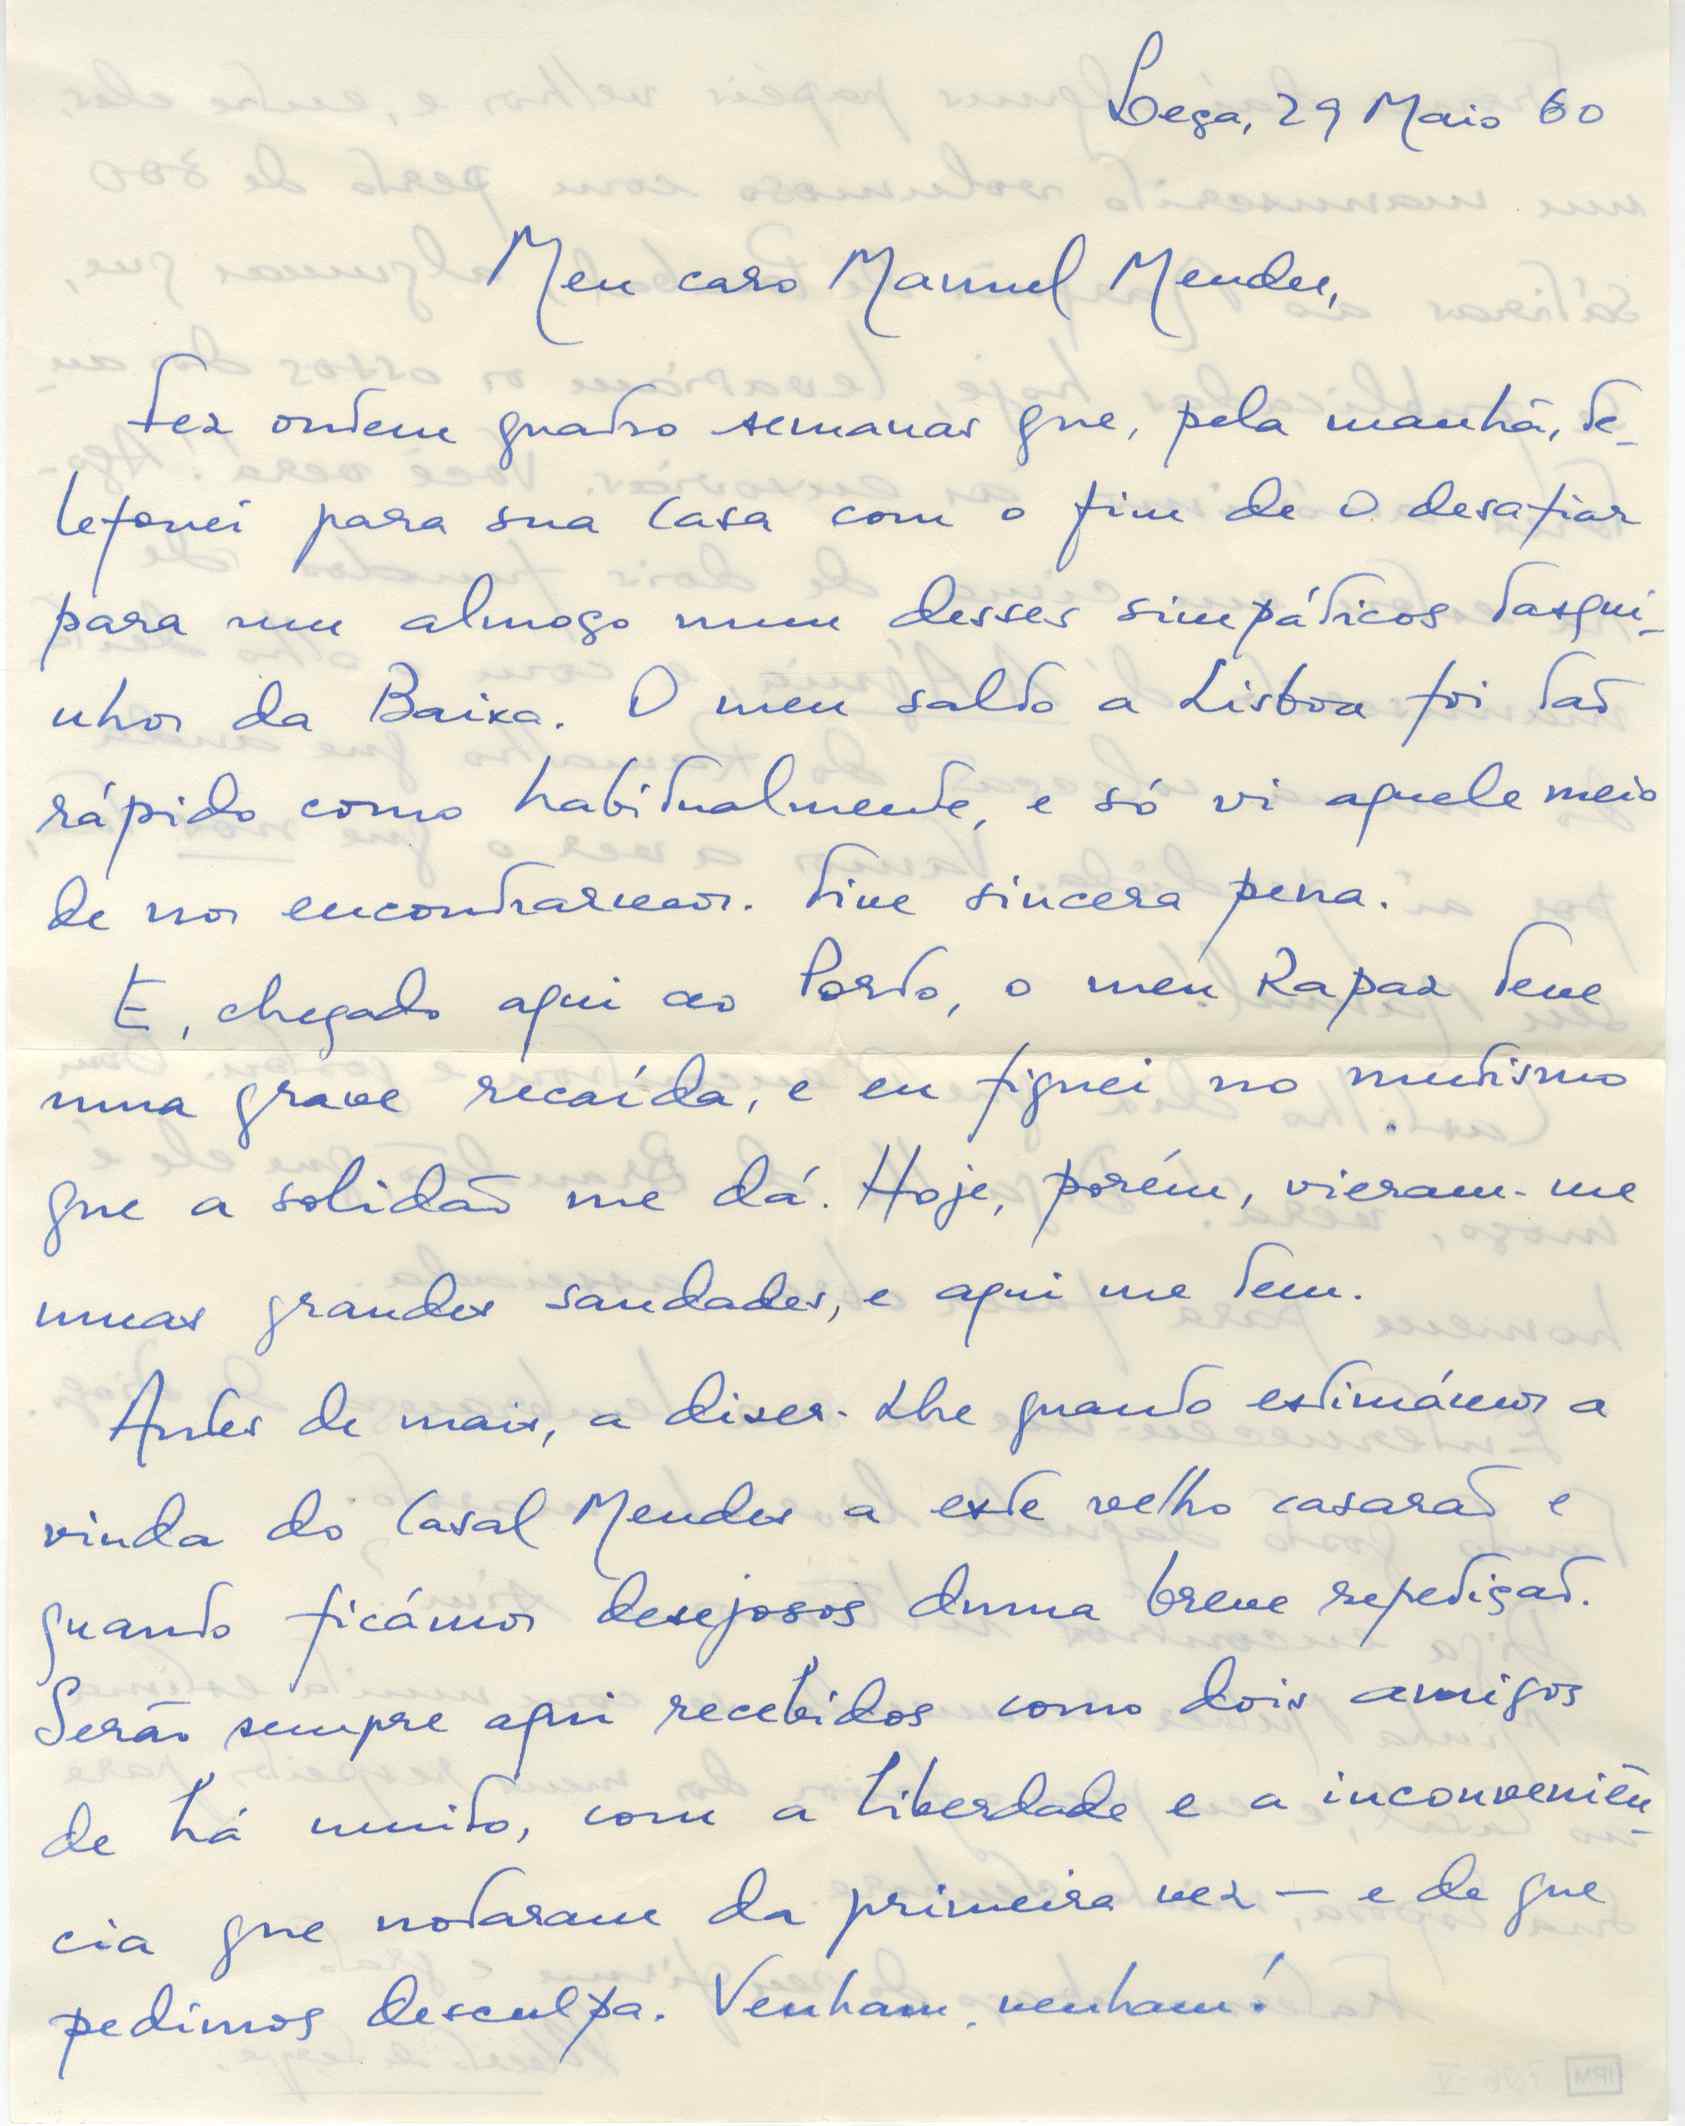 Leça, 29 Maio 60
Meu caro Manuel Mendes,
Fez ontem quatro semanas que, pela manhã, te-
lefonei para sua casa com o fim de o desafiar
para um almoço num desses simpáticos tasqui-
nhos da Baixa. O meu salto a Lisboa foi tão
rápido como habitualmente, e só vi aquele meio
de nos encontrarmos. Tive sincera pena.
E, chegado aqui ao Porto, o meu Rapaz teve
uma grave recaída, e eu fiquei no mutismo
que a solidão me dá. Hoje, porém, vieram-me
umas grandes saudades, e aqui me tem.
Antes de mais, a dizer-lhe quanto estimámos a
vinda do Casal Mendes a este velho casarão e
quanto ficámos desejosos duma breve repetição.
Serão sempre aqui recebidos como dois amigos
de há muito, com a liberdade e a inconveniên-
cia que notaram da primeira vez — e de que
pedimos desculpa. Venham, venham!